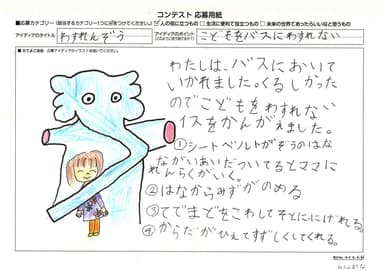 コンテスト 応募用紙
■応募カテゴリー(該当するカテゴリー1つに○をつけてください)
人の役に立つもの □生活に便利で役立つもの □未来の世界であったらいいなと思うもの
アイディアのタイトル
わすれんぞう
アイディアのポイント
こどもをバスにわすれない
わたしは、バスにおいて
いかれました。くるしかった
のでこどもをわすれない
イスをかんがえました。
①シートベルトがぞうのはな
ながいあいだついてるとママに
れんらくがいく。
②はなからみずがのめる
③てでまどをこわしてそとににげれる。
④からだがひえてすずしくしてくれる。